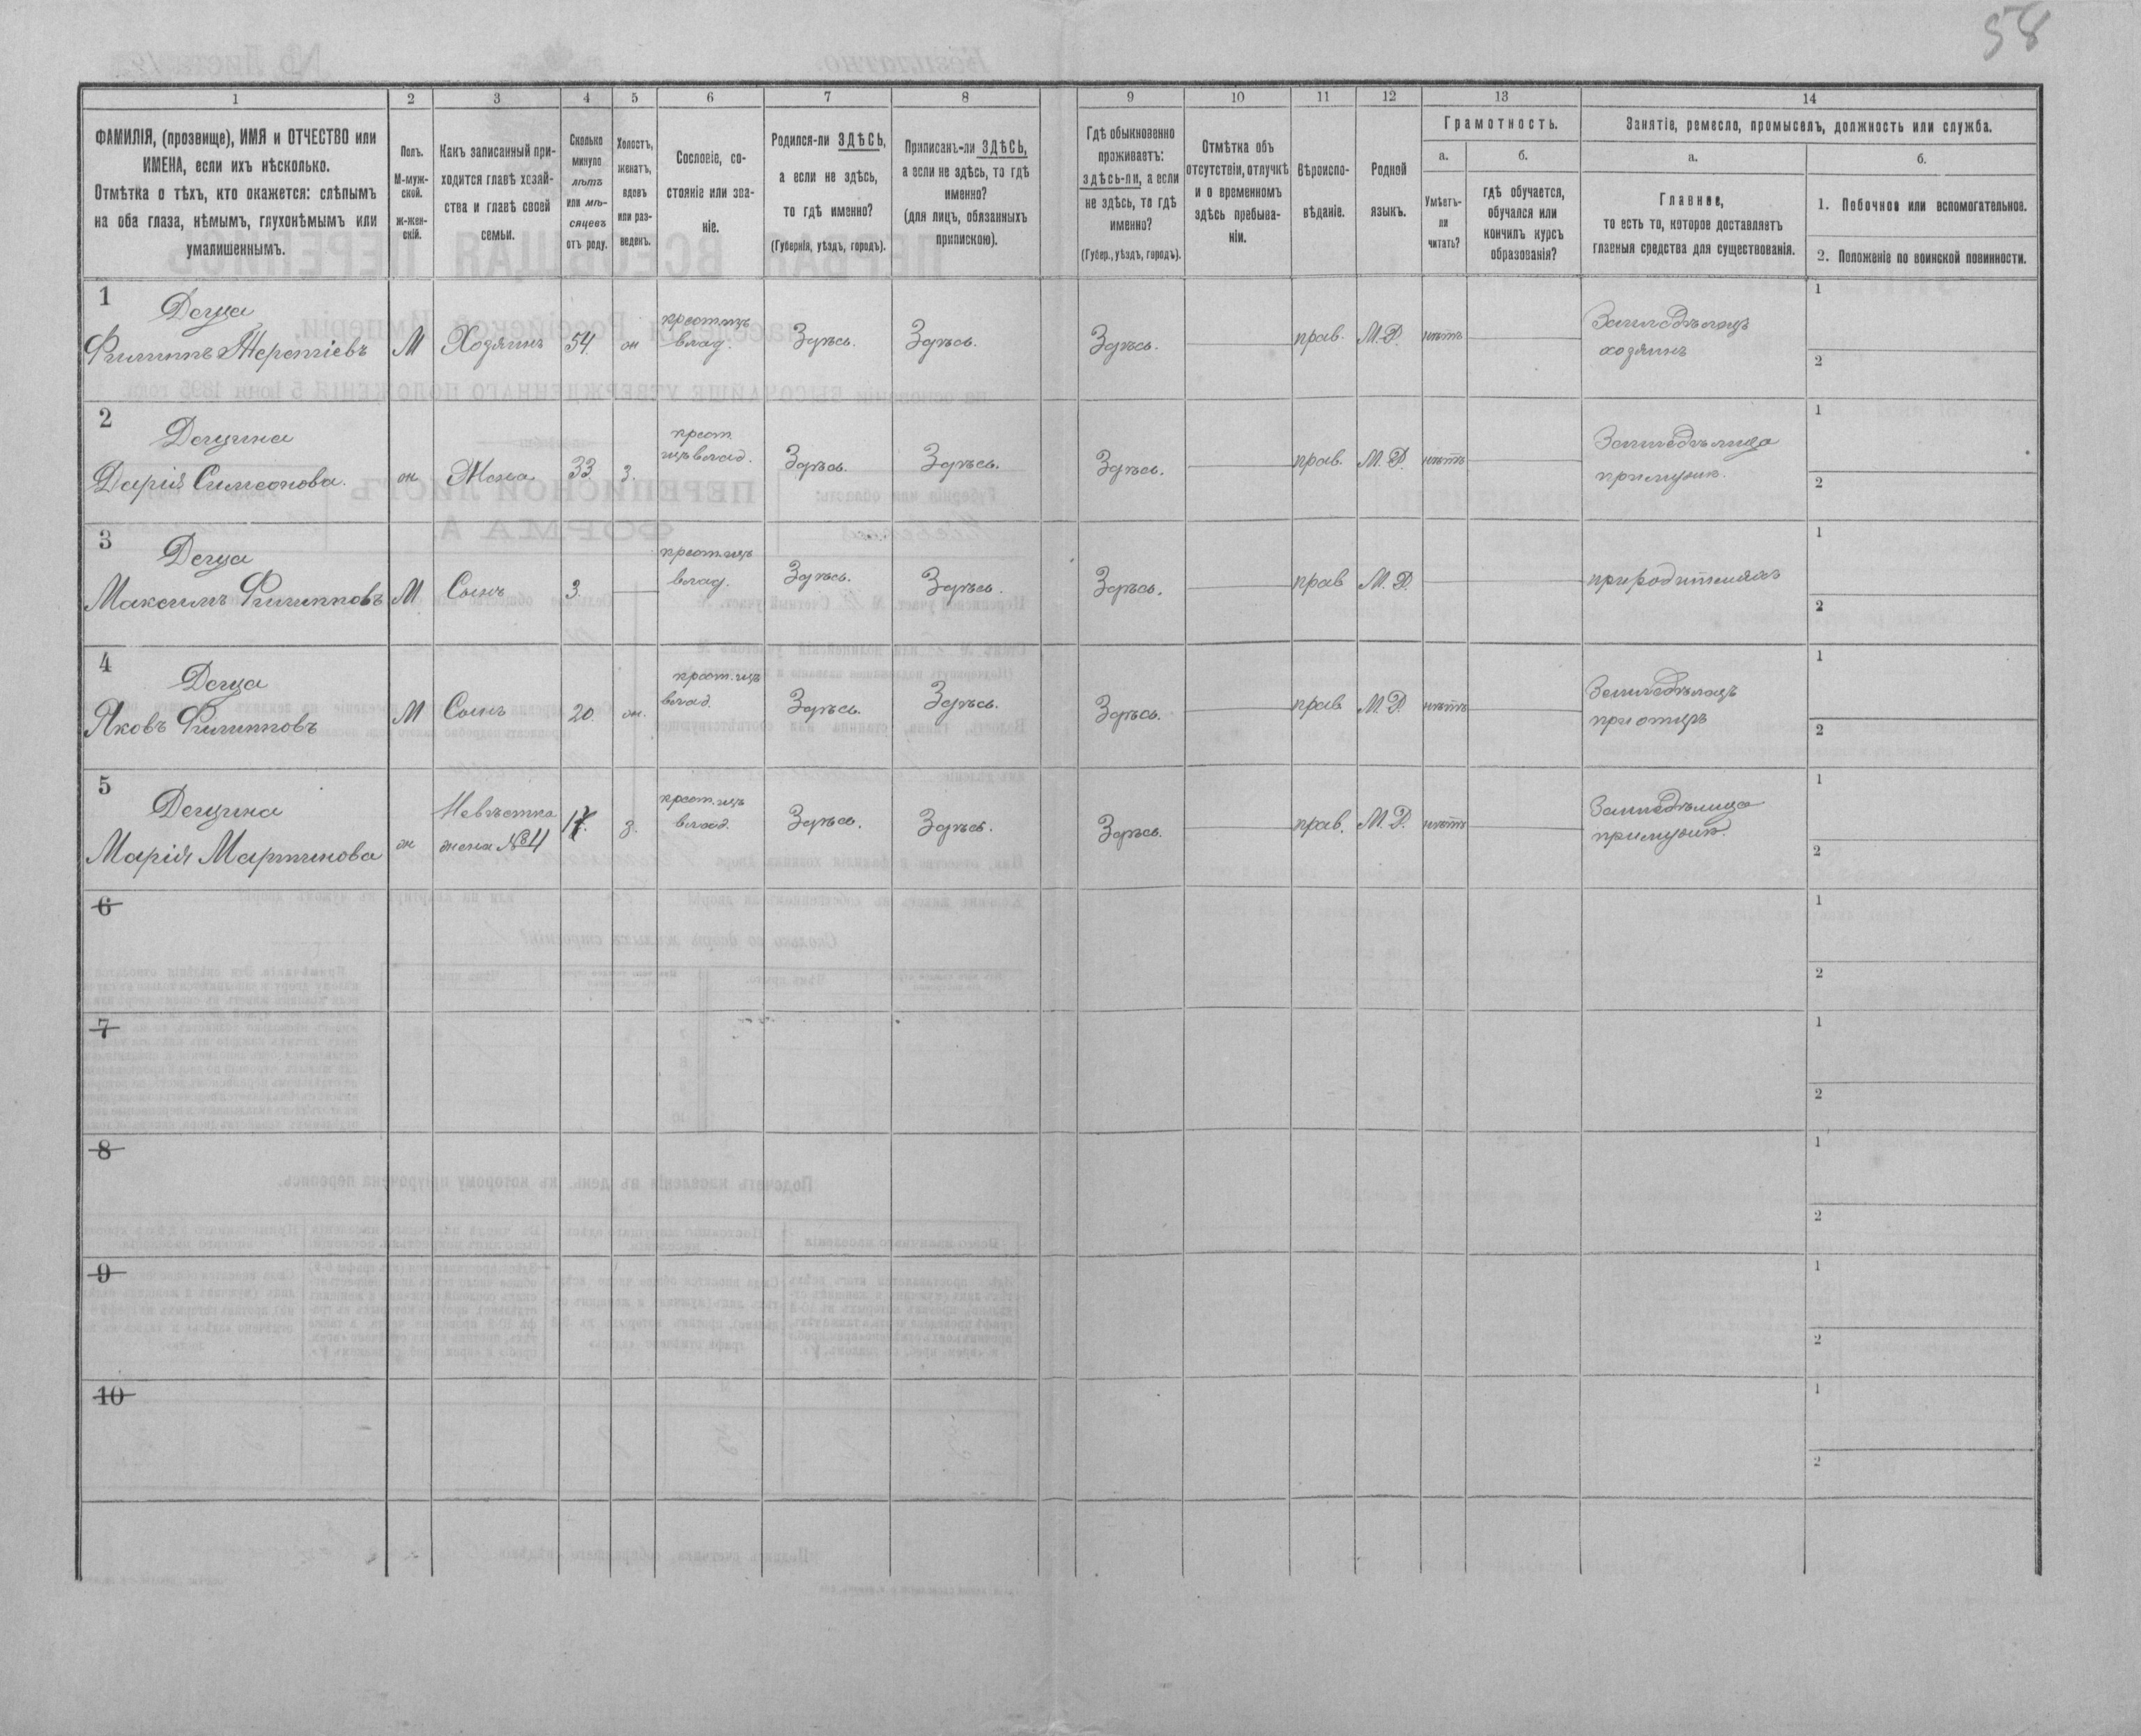 58
1 2 3 4 5 6 7 8 9 10 11 12 13 14
ФАМИЛІЯ, (прозвище), ИМЯ и ОТЧЕСТВО или
ИМЕНА, если ихъ нѣсколько.
Отмѣтка о тѣхъ, кто окажется: слѣпымъ
на оба глаза, нѣмымъ, глухонѣмымъ или
умалишеннымъ.
Полъ.
М-муж-
ской.
ж-жен-
скій.
Какъ записанный при-
ходится главѣ хозяй-
ства и главѣ своей
семьи.
Сколько
минуло
лѣтъ
или мѣ-
сяцевъ
отъ роду.
Холостъ,
женатъ,
вдовъ
или раз-
веденъ.
Сословіе, со-
стояніе или зва-
ніе.
Родился-ли ЗДѢСЬ,
а если не здѣсь,
то гдѣ именно?
(Губернія, уѣздъ, городъ).
Приписанъ-ли ЗДѢСЬ,
а если не здѣсь, то гдѣ
именно?
(для лицъ, обязанныхъ
припискою).
Гдѣ обыкновенно
проживаетъ:
здѣсь-ли, а если
не здѣсь, то гдѣ
именно?
(Губер., уѣздъ, городъ).
Отмѣтка объ
отсутствіи, отлучкѣ
и о временномъ
здѣсь пребыва-
ніи.
Вѣроиспо-
вѣданіе.
Родной
языкъ.
Грамотность.
а.
Умѣетъ-
ли
читать?
б.
гдѣ обучается,
обучался или
кончилъ курсъ
образованія?
Занятіе, ремесло, промыселъ, должность или служба.
а.
Главное,
то есть то, которое доставляетъ
главныя средства для существованія.
б.
1. Побочное или вспомогательное.
2. Положеніе по воинской повинности.
1
Дегца
Филиппъ Терентіевъ
М
Хозяинъ
54.
ж
крест. изъ
влад.
Здѣсь.
Здѣсь.
Здѣсь.
прав.
М. Р.
нѣтъ
Земледѣлецъ
хозяинъ
1
2
2
Дегцина
Дарія Симеонова.
ж
Жена
33.
з.
крест.
изъ влад.
Здѣсь.
Здѣсь.
Здѣсь.
прав.
М. Р.
нѣтъ
Земледѣлица
при мужѣ.
1
2
3
Дегца
Максимъ Филипповъ
М
Сынъ
3.
крест. изъ
влад.
Здѣсь.
Здѣсь.
Здѣсь.
прав
М. Р.
при родителяхъ
1
2
4
Дегца
Яковъ Филипповъ
М
Сынъ
20.
ж.
крест. изъ
влад.
Здѣсь.
Здѣсь.
Здѣсь.
прав.
М. Р.
нѣтъ
Земледѣлецъ
при отцѣ
1
2
5
Дегцина
Марія Мартинова
ж
Невѣстка
жена №4
17.
з.
крест. изъ
влад.
Здѣсь.
Здѣсь.
Здѣсь.
прав.
М. Р.
нѣтъ
Земледѣлица
при мужѣ.
1
2
6
1
2
7
1
2
8
1
2
9
1
2
10
1
2